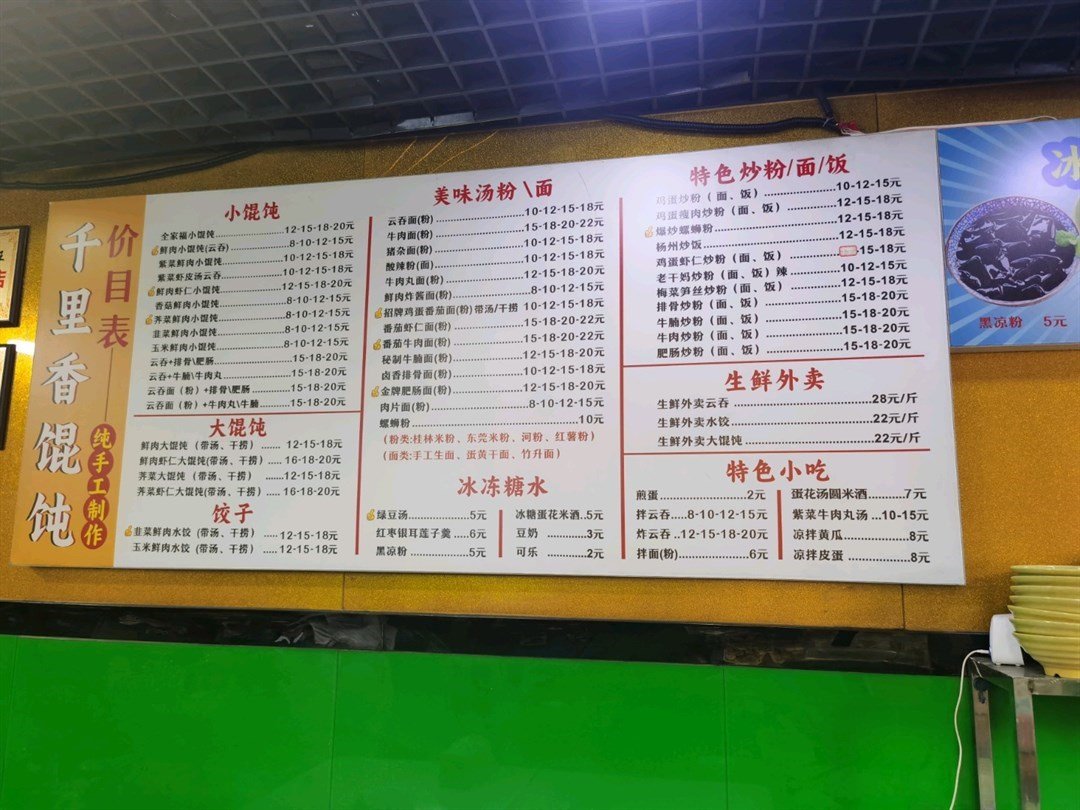 千里香馄饨
价目表
纯手工制作
小馄饨
全家福小馄饨 12-15-18-20元
鲜肉小馄饨(云吞) 8-10-12-15元
紫菜鲜肉小馄饨 10-12-15-18元
紫菜虾皮汤云吞 10-12-15-18元
鲜肉虾仁小馄饨 12-15-18-20元
香菇鲜肉小馄饨 8-10-12-15元
荠菜鲜肉小馄饨 8-10-12-15元
韭菜鲜肉小馄饨 8-10-12-15元
玉米鲜肉小馄饨 8-10-12-15元
云吞+排骨\肥肠 15-18-20元
云吞+牛腩\牛肉丸 15-18-20元
云吞面（粉）+排骨\肥肠 15-18-20元
云吞面（粉）+牛肉丸\牛腩 15-18-20元
大馄饨
鲜肉大馄饨（带汤、干捞） 12-15-18元
鲜肉虾仁大馄饨(带汤、干捞) 16-18-20元
荠菜大馄饨（带汤、干捞） 12-15-18元
荠菜虾仁大馄饨(带汤、干捞) 16-18-20元
饺子
韭菜鲜肉水饺（带汤、干捞） 12-15-18元
玉米鲜肉水饺（带汤、干捞） 12-15-18元
美味汤粉\面
云吞面(粉) 10-12-15-18元
牛肉面(粉) 15-18-20-22元
猪杂面(粉) 10-12-15-18元
酸辣粉(面) 10-12-15-18元
牛肉丸面(粉) 12-15-18-20元
鲜肉炸酱面(粉) 8-10-12-15元
招牌鸡蛋番茄面(粉)带汤/干捞 10-12-15-18元
番茄虾仁面(粉) 15-18-20-22元
番茄牛肉面(粉) 15-18-20-22元
秘制牛腩面(粉) 12-15-18-20元
卤香排骨面(粉) 10-12-15-18元
金牌肥肠面(粉) 12-15-18-20元
肉片面(粉) 8-10-12-15元
螺蛳粉 10元
（粉类:桂林米粉、东莞米粉、河粉、红薯粉）
（面类:手工生面、蛋黄干面、竹升面）
冰冻糖水
绿豆汤 5元
红枣银耳莲子羹 6元
黑凉粉 5元
冰糖蛋花米酒 5元
豆奶 3元
可乐 2元
特色炒粉/面/饭
鸡蛋炒粉（面、饭） 10-12-15元
鸡蛋瘦肉炒粉（面、饭） 12-15-18元
爆炒螺蛳粉 12-15-18元
杨州炒饭 12-15-18元
鸡蛋虾仁炒粉（面、饭） 15-18元
老干妈炒粉（面、饭）辣 10-12-15元
梅菜笋丝炒粉（面、饭） 12-15-18元
排骨炒粉（面、饭） 15-18-20元
牛腩炒粉（面、饭） 15-18-20元
牛肉炒粉（面、饭） 15-18-20元
肥肠炒粉（面、饭） 15-18-20元
生鲜外卖
生鲜外卖云吞 28元/斤
生鲜外卖水饺 22元/斤
生鲜外卖大馄饨 22元/斤
特色小吃
煎蛋 2元
拌云吞 8-10-12-15元
炸云吞 12-15-18-20元
拌面(粉) 6元
蛋花汤圆米酒 7元
紫菜牛肉丸汤 10-15元
凉拌黄瓜 8元
凉拌皮蛋 8元
冰
黑凉粉 5元